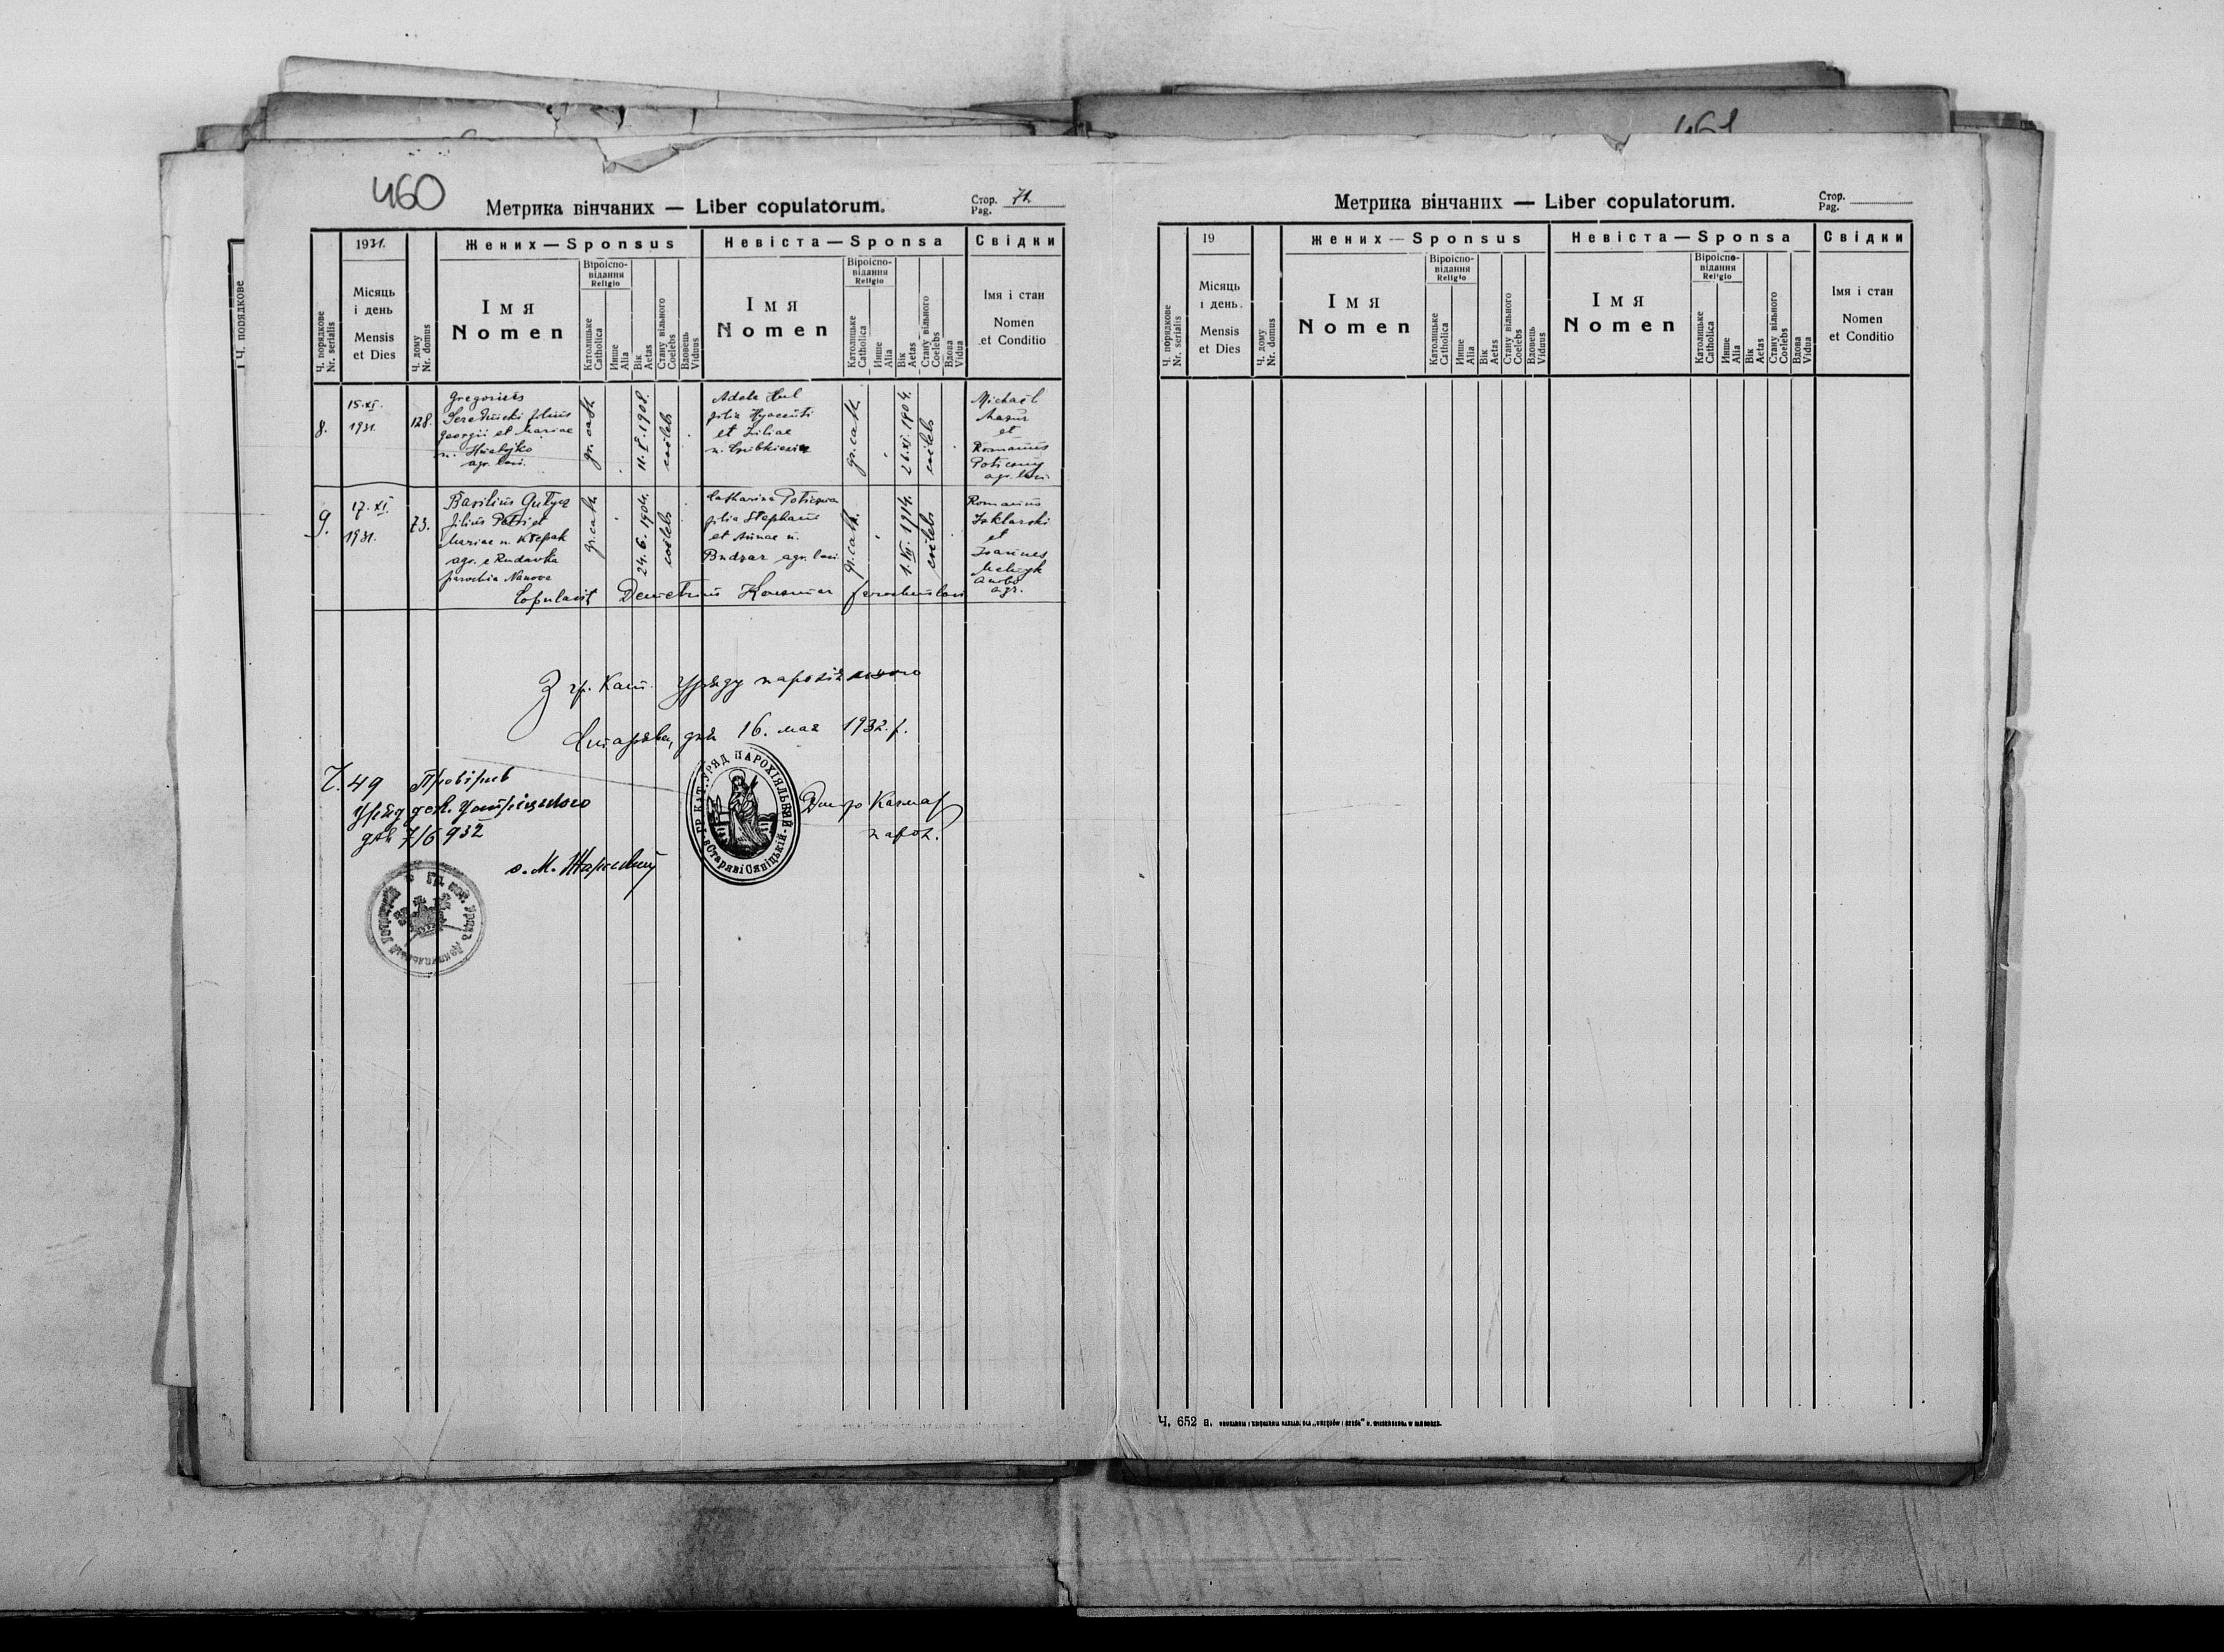 460
461
Метрика вінчаних — Liber copulatorum.
Стор. 71
Pag.
1931.
Жених — Sponsus
Невіста — Sponsa
Свідки
Ч. порядкове
Nr. serialis
Місяць
і день
Mensis
et Dies
Ч. дому
Nr. domus
Імя
Nomen
Віроіспо-
відання
Religio
Католицьке
Catholica
Инше
Alia
Вік
Aetas
Стану вільного
Coelebs
Вдовець
Viduus
Імя
Nomen
Віроіспо-
відання
Religio
Католицьке
Catholica
Инше
Alia
Вік
Aetas
Стану вільного
Coelebs
Вдова
Vidua
Імя і стан
Nomen
et Conditio
8.
15.XI.
1931.
128.
Gregorius
filius
Georgii et Mariae
n.
agr. loci.
gr. cath.
11.V.1908.
coelebs
Adela Hul
filia Hyacinti
et Juliae
n.
gr. cath.
26.XI.1904.
coelebs
Michael
Mazur
et
Romanus
Poticzny
agr. loci
9.
17.XI.
1931.
73.
Basilius
filius Petri et
Mariae n. Klepak
agr. e Rudavka
parochia Nanova
gr. cath.
24.6.1904.
coelebs
Catharina Poticzna
filia Stephani
et Annae n.
Budzar agr. loci
gr. cath.
1.VII.1914.
coelebs
Romanus
et
Joannes
Melnyk
ambo
agr.
Copulavit Demetrius parochus loci
З гр. кат. Уряду парохіяльного
Старява, дня 16. мая 1932. р.
Ч. 49 Провірив
Уряд дек. Устріцького
дня 7/6 932
о. М.
ГР. КАТ. УРЯД ПАРОХІЯЛЬНИЙ
в Стариві Сяніцькій
Дмитро
парох.
Метрика вінчаних — Liber copulatorum.
Стор.
Pag.
19
Жених — Sponsus
Невіста — Sponsa
Свідки
Ч. порядкове
Nr. serialis
Місяць
і день.
Mensis
et Dies
Ч. дому
Nr. domus
Імя
Nomen
Віроіспо-
відання
Religio
Католицьке
Catholica
Инше
Alia
Вік
Aetas
Стану вільного
Coelebs
Вдовець
Viduus
Імя
Nomen
Віроіспо-
відання
Religio
Католицьке
Catholica
Инше
Alia
Вік
Aetas
Стану вільного
Coelebs
Вдова
Vidua
Імя і стан
Nomen
et Conditio
Ч. 652 а.
Ч. порядкове